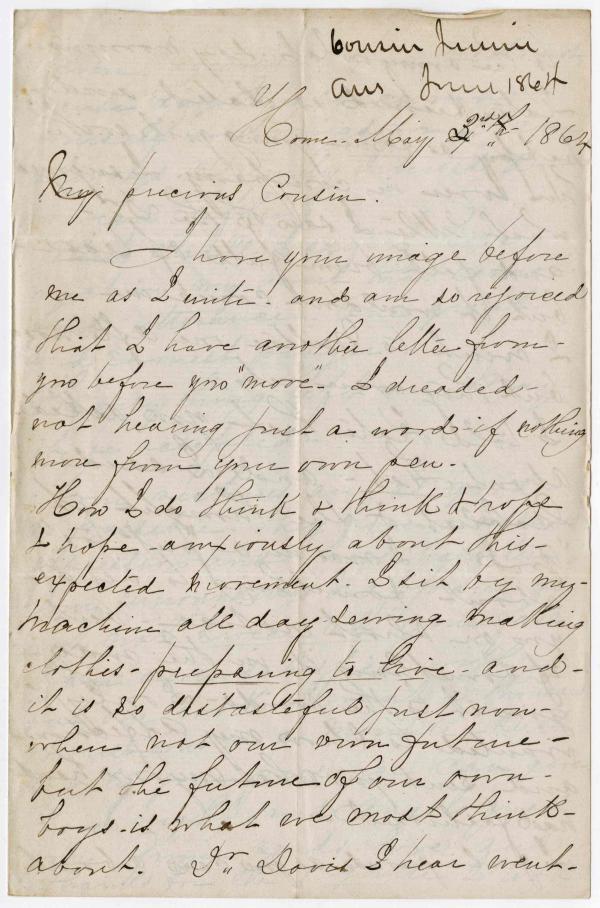 Cousin Jennie
Ans June 1864
Home. May 3rd 1864
My precious Cousin.
I have your image before
me as I write - and am so rejoiced
that I have another letter from -
you before you "move" - I dreaded -
not hearing just a word - if nothing
more from your own pen -
How I do think & think & hope
& hope - anxiously about this -
expected movement. I sit by my -
machine all day sewing making
clothes - preparing to live - and -
it is so distasteful just now -
when not our own future -
but the future of our own -
boys - is what we most think -
about. Dr. Davis I hear went -